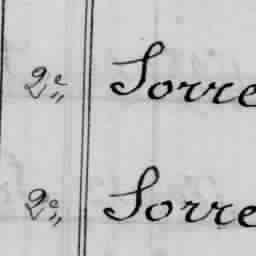 2e„ Sorre
2e„ Sorre